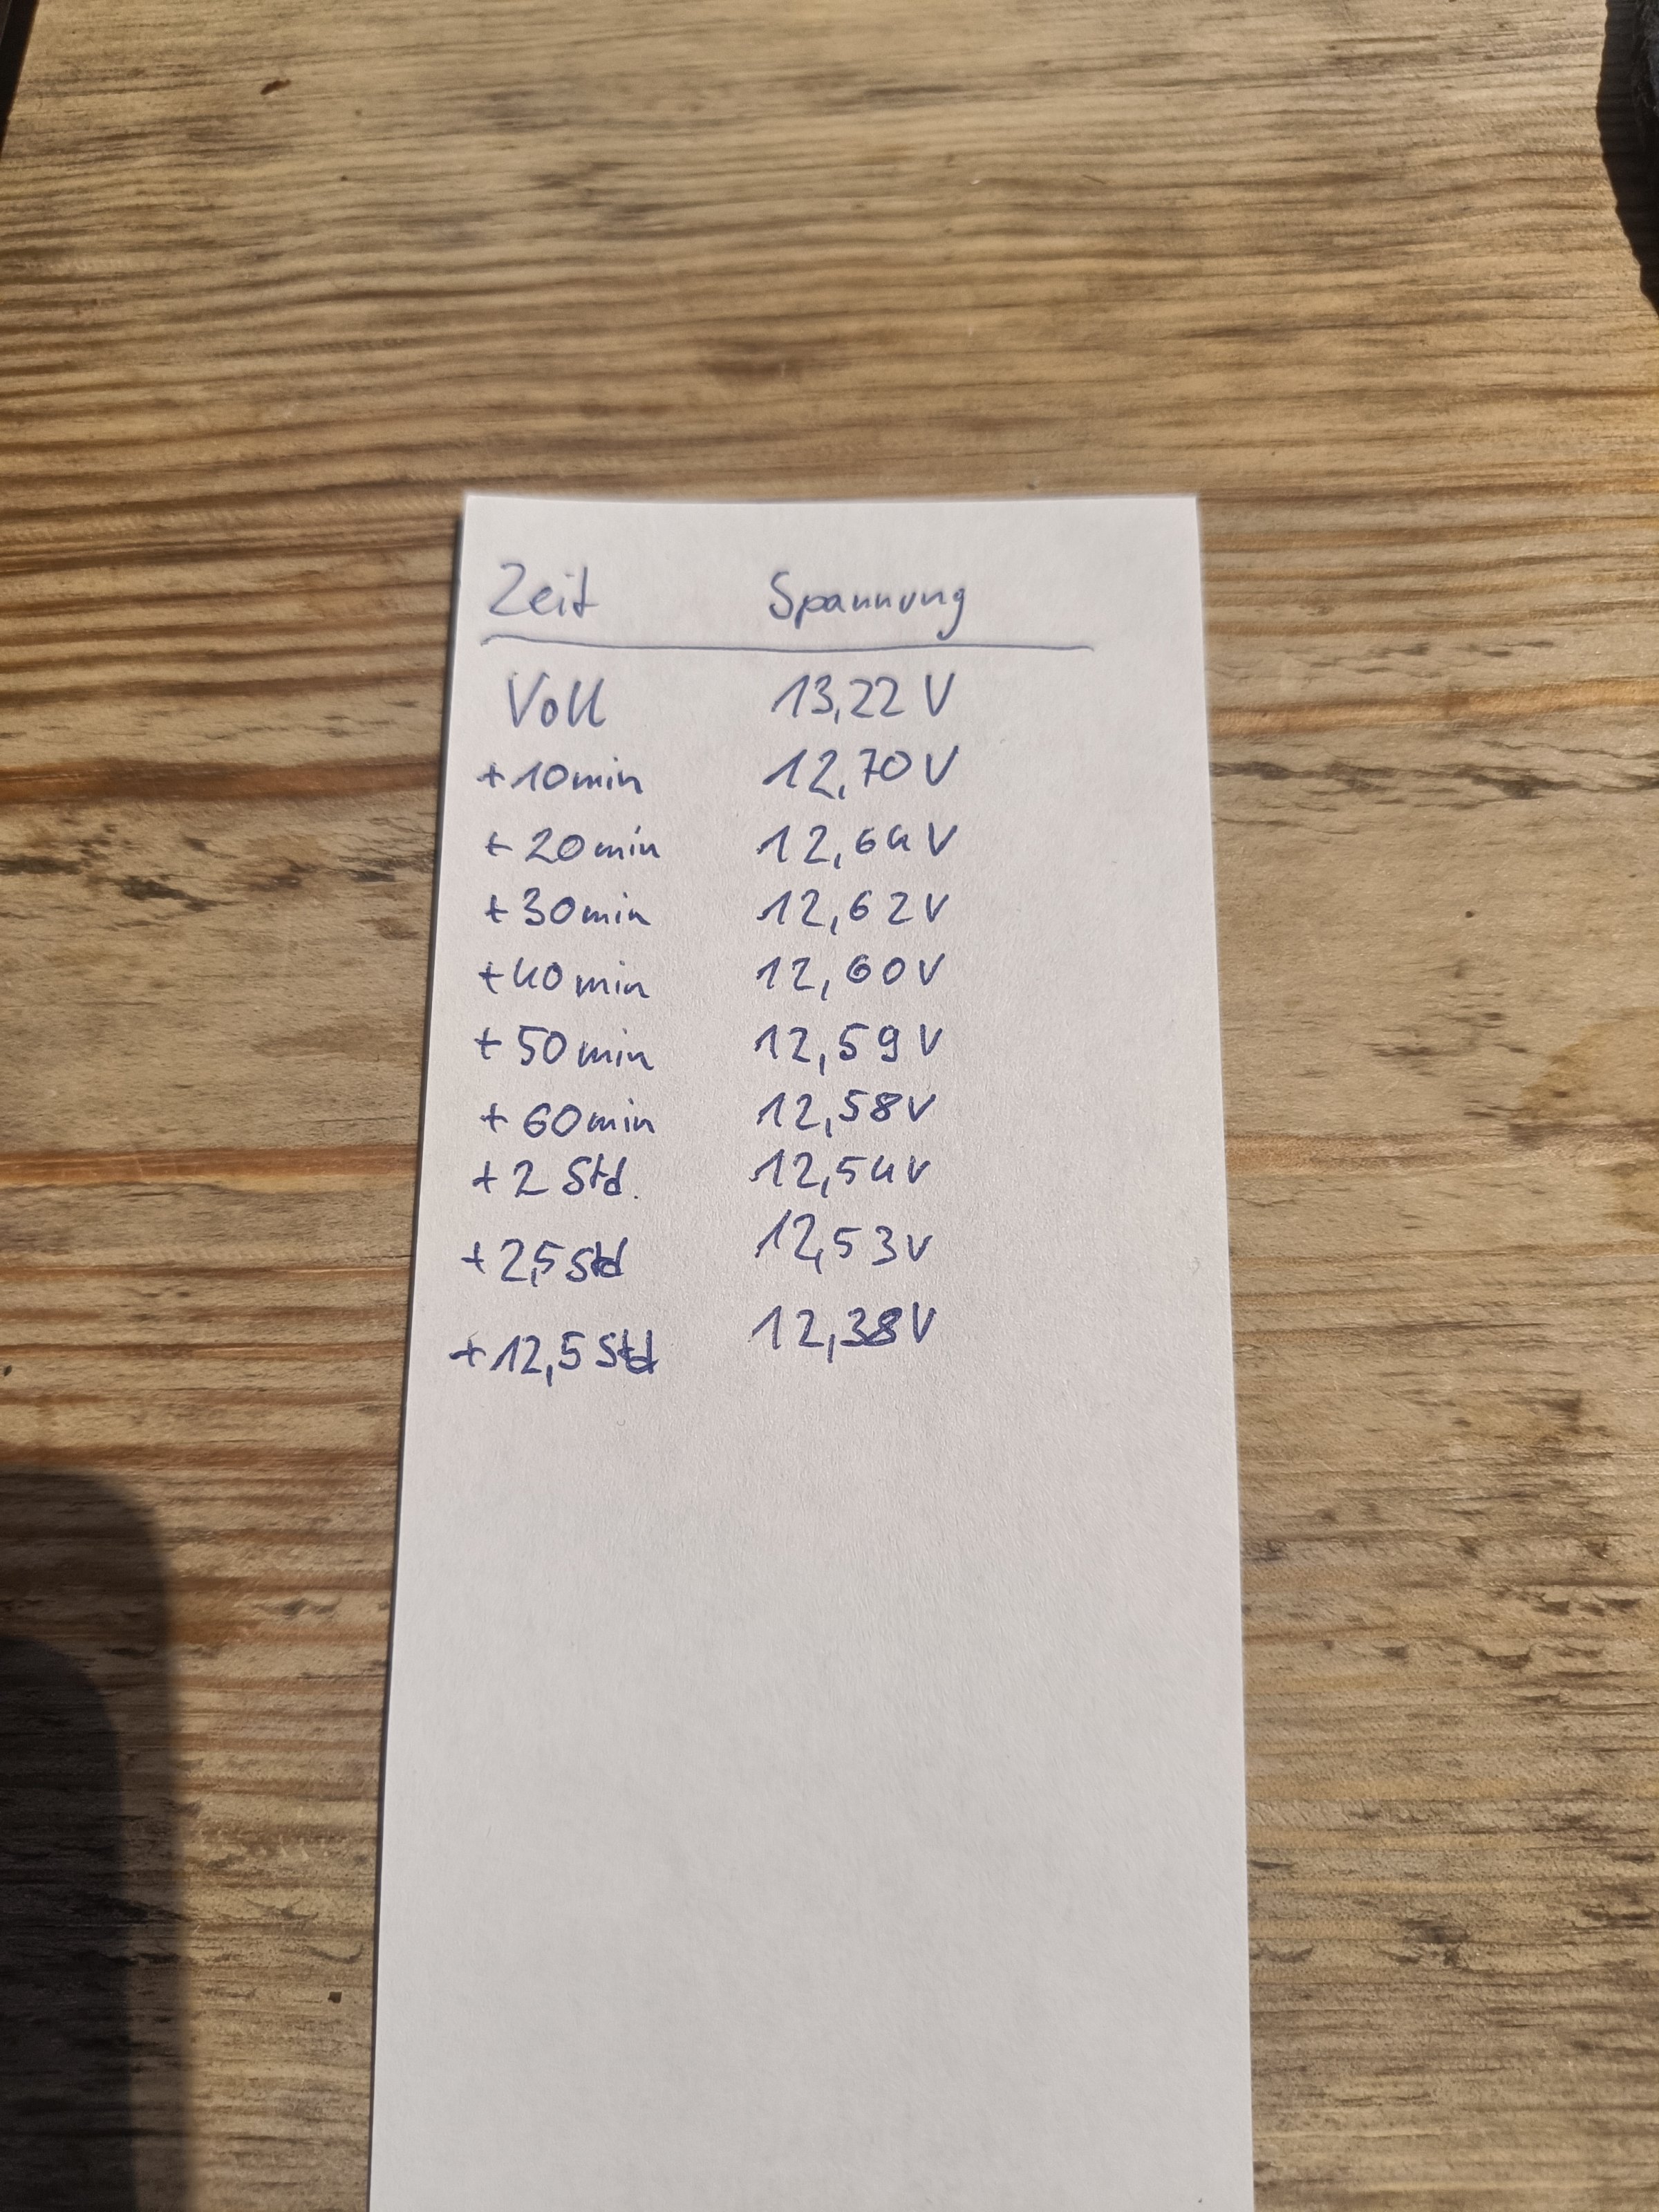 Zeit Spannung
Voll 13,22 V
+10min 12,70 V
+20min 12,64 V
+30min 12,62 V
+40min 12,60 V
+50min 12,59 V
+60min 12,58 V
+2 Std. 12,54 V
+2,5 Std 12,53 V
+12,5 Std 12,38 V